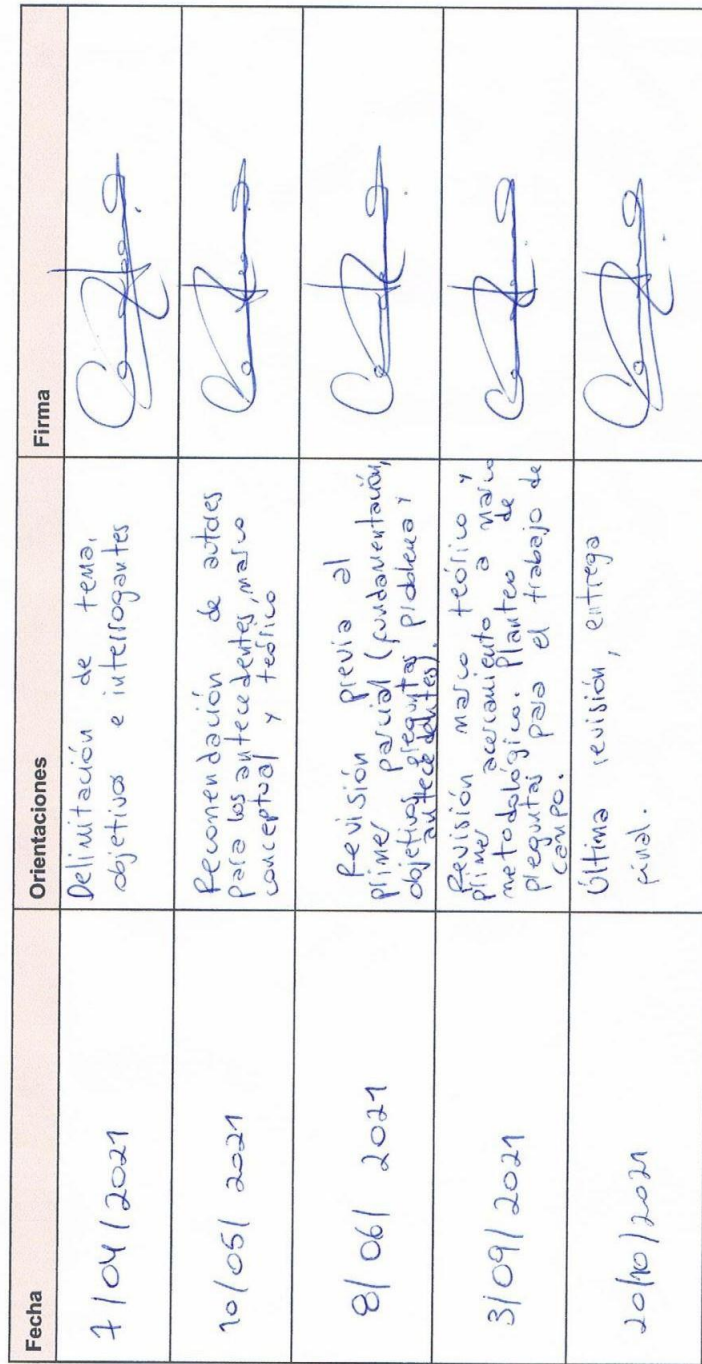 Fecha
Orientaciones
Firma
7/04/2021
Delimitación de tema,
objetivos e interrogantes
10/05/2021
Recomendación de autores
para los antecedentes, marco
conceptual y teórico
8/06/2021
Revisión previa al
primer parcial (fundamentación,
objetivos, preguntas problema y
antecedentes).
3/09/2021
Revisión marco teórico y
primer acercamiento a marco
metodológico. Planteo de
preguntas para el trabajo de
campo.
20/10/2021
Última revisión, entrega
final.